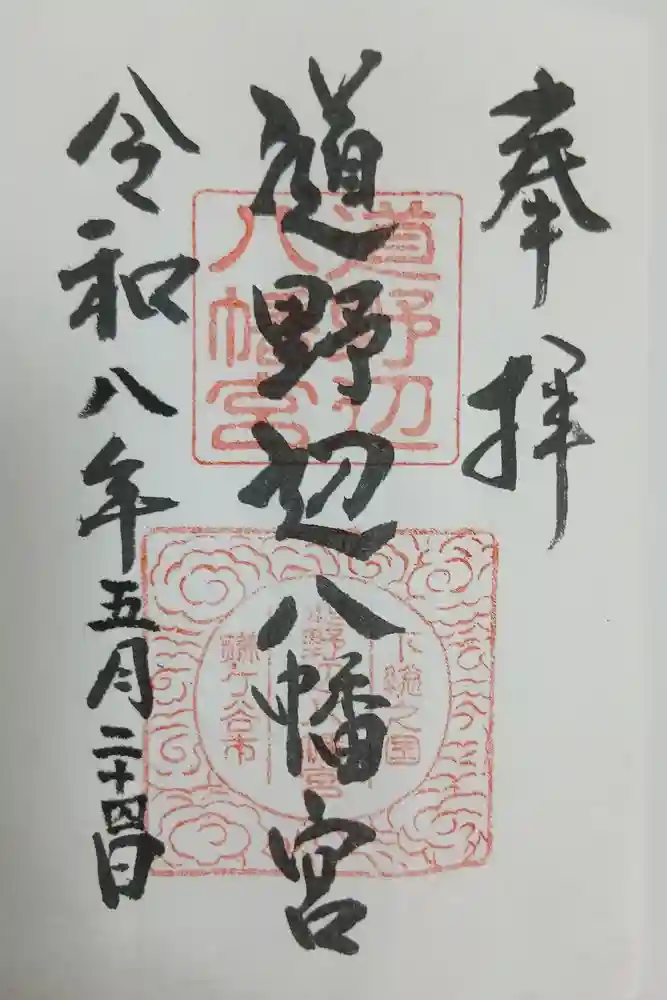 奉拝
道野辺八幡宮
令和八年五月二十四日
道野辺
八幡宮
下総之国
道野辺八幡宮
鎌ケ谷市